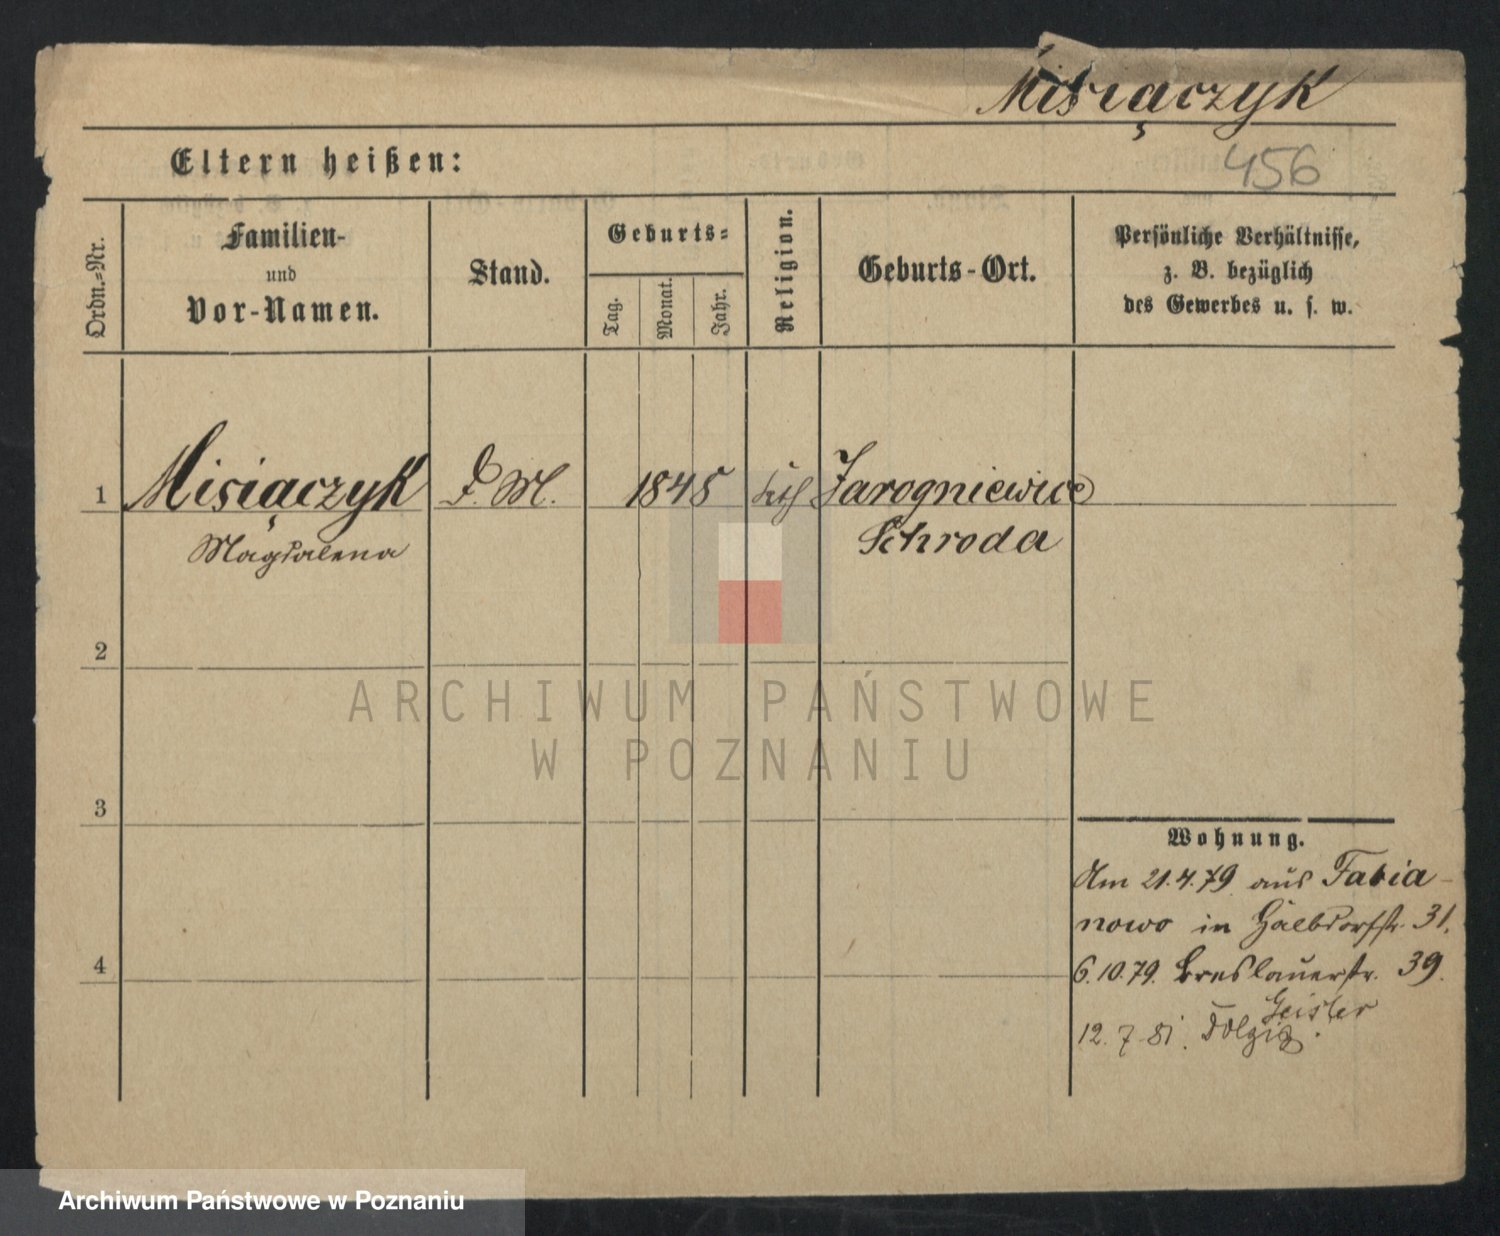 Misiączyk
Eltern heißen:
456
Ordn.-Nr.
Familien-
und
Vor-Namen.
Stand.
Geburts-
Tag.
Monat.
Jahr.
Religion.
Geburts-Ort.
Persönliche Verhältnisse,
z. B. bezüglich
des Gewerbes u. s. w.
1 Misiączyk D. M. 1845 kath Jarogniewice
Magdalena
Schroda
2
3
4
Wohnung.
Am 21.4.79 aus Fabia-
nowo in Halbdorfstr. 31.
6.10.79. Breslauerstr. 39.
Geisler
12.7.81. Dolzig.
ARCHIWUM PAŃSTWOWE
W POZNANIU
Archiwum Państwowe w Poznaniu